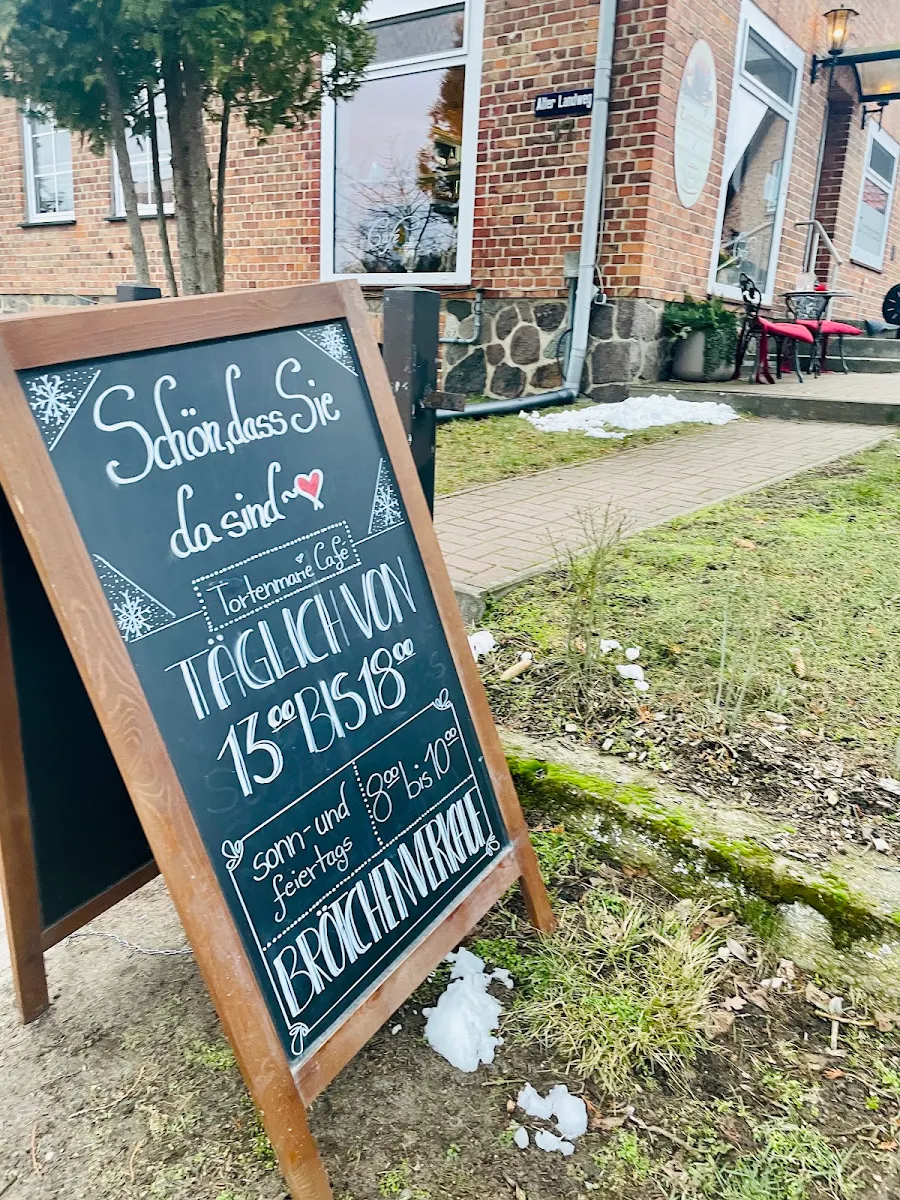 Alter Landweg
Schön, dass Sie
da sind~
Tortenmarie Café
TÄGLICH VON
13⁰⁰ BIS 18⁰⁰
sonn- und
feiertags
8⁰⁰ bis 10⁰⁰
BRÖTCHENVERKAUF